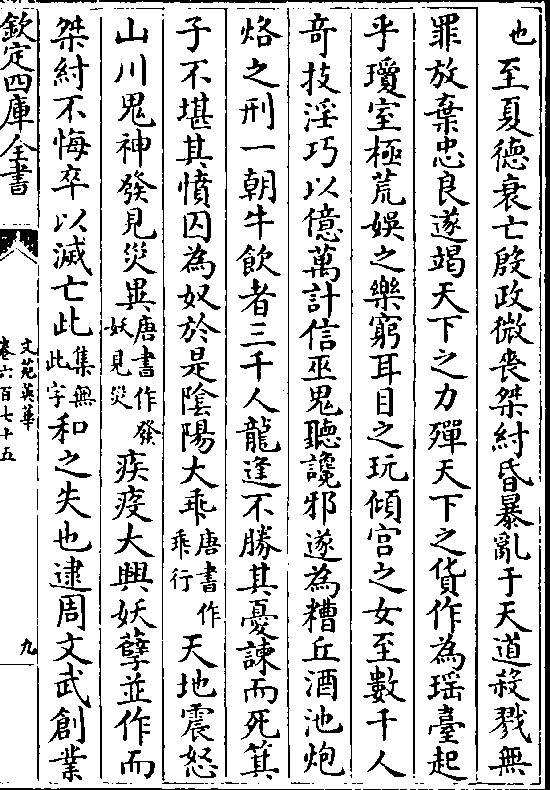 也至夏德衰亡殷政微喪桀紂昏暴亂于天道殺戮無
罪放棄忠良遂竭天下之力殫天下之貨作為瑶臺起
乎瓊室極荒娯之樂窮耳目之玩傾宫之女至數千人
竒技淫巧以億萬計信巫鬼聽讒邪遂為糟丘酒池炮
烙之刑一朝牛飲者三千人龍逢不勝其憂諫而死箕
子不堪其憤囚為奴於是隂陽大乖唐書作乖行天地震怒
山川鬼神發見災異唐書作發妖見災疾疫大興妖孽並作而
桀紂不悔卒以滅亡此集無此字和之失也逮周文武創業
欽定四庫全書
文苑英華
卷六百七十五
九